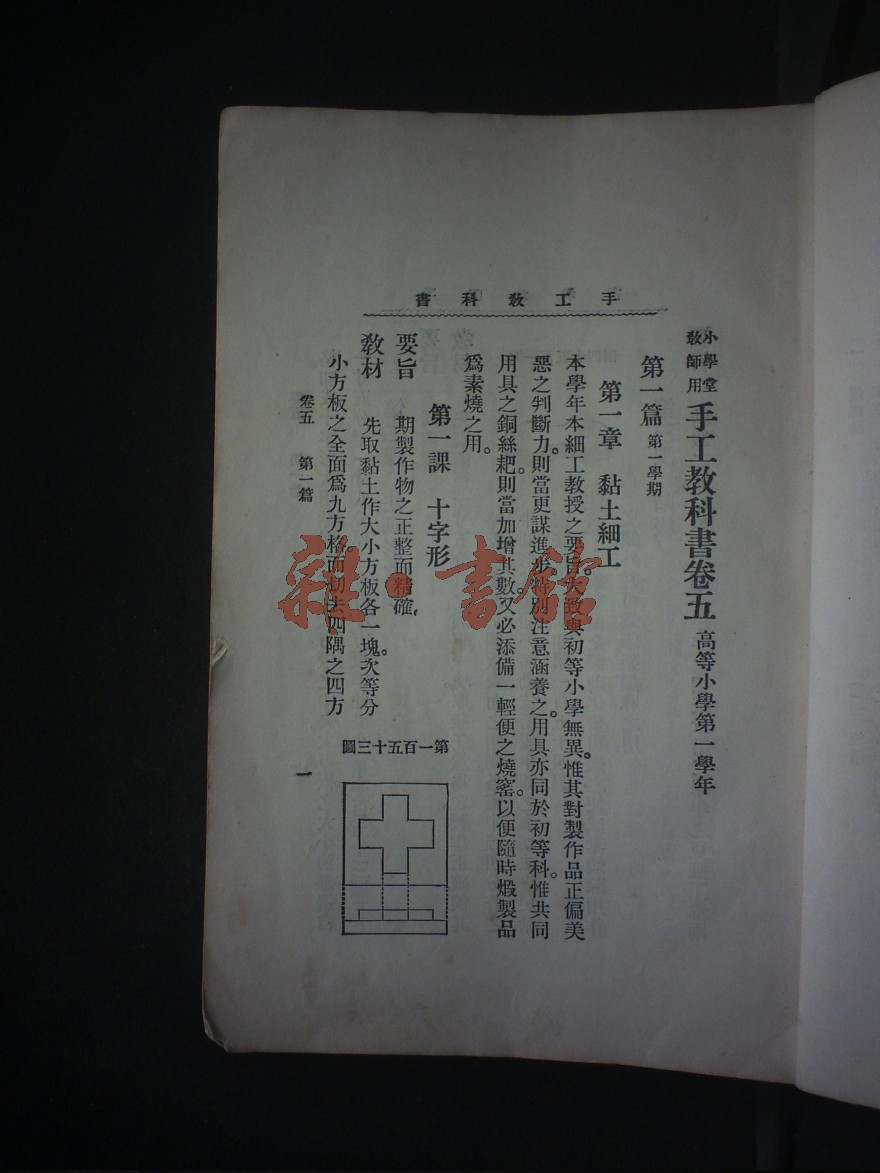 手工敎科書
小學堂
敎師用
手工敎科書卷五 高等小學第一學年
第一篇 第一學期
第一章 黏土細工
本學年本細工教授之要旨。大致與初等小學無異。惟其對製作品正偏美
惡之判斷力。則當更謀進步。特別注意涵養之。用具亦同於初等科。惟共同
用具之銅絲耙。則當加增其數。又必添備一輕便之燒窰。以便隨時煅製品
爲素燒之用。
第一課 十字形
要旨 期製作物之正整而精確。
敎材 先取黏土作大小方板各一塊。次等分
小方板之全面爲九方格。而切去四隅之四方
第一百五十三圖
卷五 第一篇
一
雜·書館